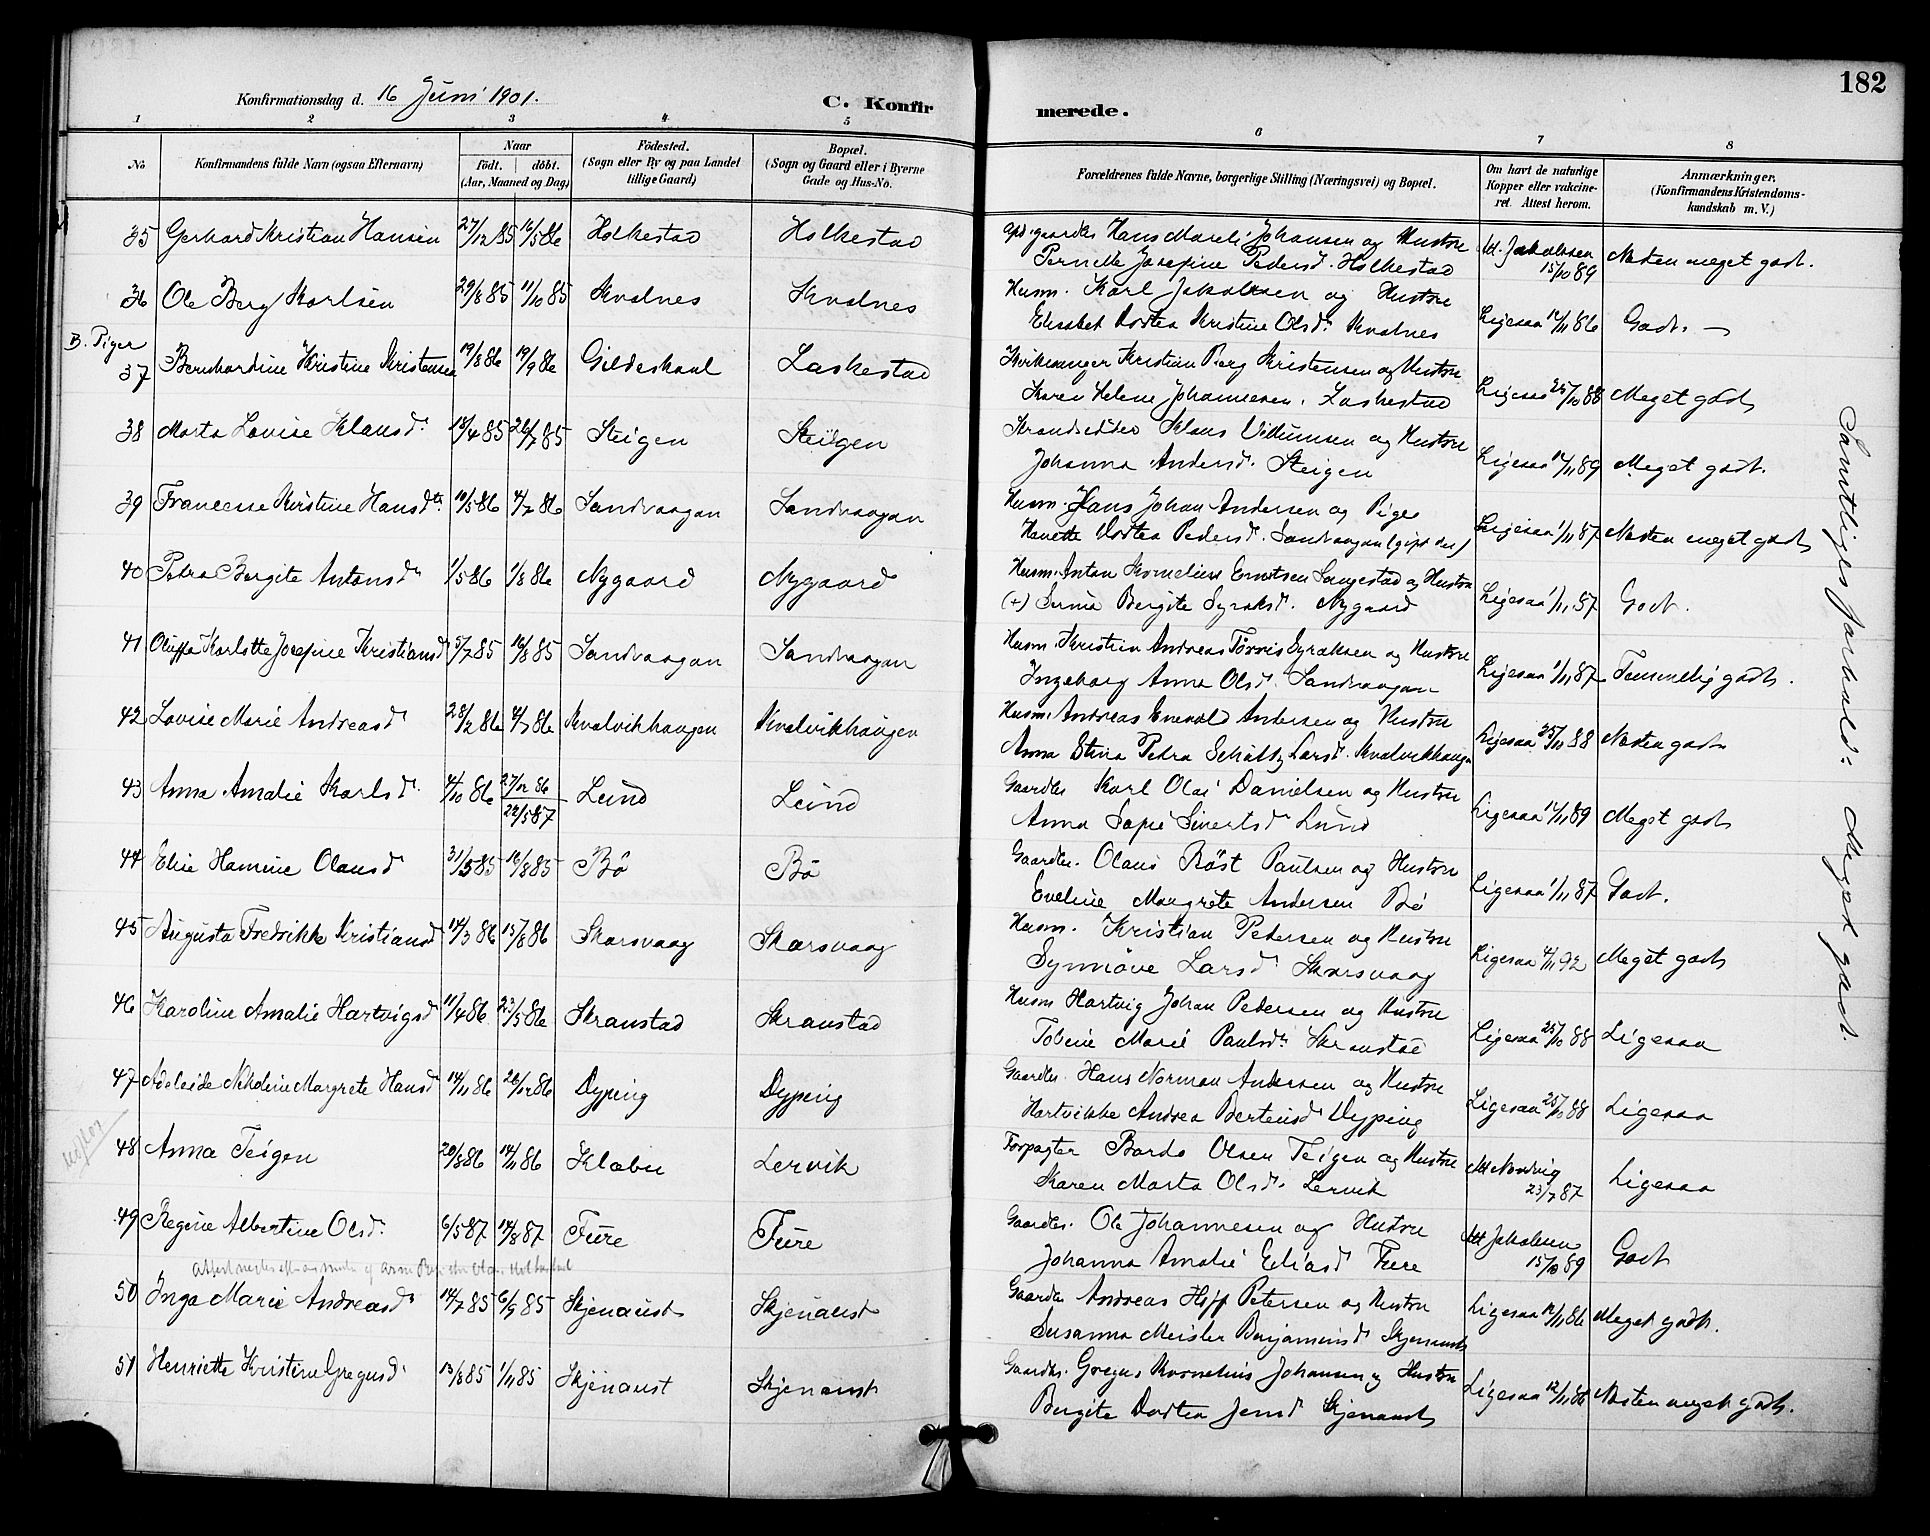 182
Konfirmationsdag d. 16 Juni 1901.
C. Konfirmerede.
1 2 3 4 5 6 7 8
No
Konfirmandens fulde Navn (ogsaa Efternavn)
Naar
födt. döbt.
(Aar, Maaned og Dag)
Födested.
(Sogn eller By og paa Landet
tillige Gaard)
Bopæl.
(Sogn og Gaard eller i Byerne
Gade og Hus-No.
Forældrenes fulde Navne, borgerlige Stilling (Næringsvei) og Bopæl.
Om havt de naturlige
Kopper eller vakcine-
ret. Attest herom.
Anmærkninger.
(Konfirmandens Kristendoms-
kundskab m. V.)
35 Gerhard Kristian Hansen 27/12 85 16/5 86 Holkestad Holkestad
gaardbr Hans Mareli Johansen og Hustru
Pernelle Josefine Pedersd. Holkestad
Att. Jakobsen
15/10 89
Næsten meget godt.
36 Ole Berg Karlsen 29/8 85 11/10 85 Kvalnes Kvalnes
Husm. Karl Jakobsen og Hustru
Elisabet Dortea Kristine Olsd. Kvalnes
Ligesaa 12/11 86 Godt.
B. Piger
37 Bernhardine Kristine Kristensen 19/8 86 19/9 86 Gildeskaal Laskestad
Kirkesanger Kristian Berg Kristensen og Hustru
Karen Helene Johannesen. Laskestad
Ligesaa 25/10 88 Meget godt
38 Marta Lovise Klausd. 18/4 85 26/7 85 Steigen Steigen
Strandsidder Klaus Villumsen og Hustru
Johanna Andersd. Steigen
Ligesaa 12/11 89 Meget godt.
39 Francesse Kristine Hansdtr. 10/5 86 4/7 86 Sandvaagan Sandvaagan
Husm. Hans Johan Andersen og Pige
Hanette Dortea Pedersd. Sandvaagan (gift der)
Ligesaa 1/11 87 Næsten meget godt
40 Petra Bergite Antonsd. 1/5 86 1/8 86 Nygaard Nygaard
Husm. Anton Kornelius Erntsen Sangestad og Hustru
(+) Serine Bergite Syraksd. Nygaard
Ligesaa 1/11 87 Godt.
41 Oluffa Karlotte Josefine Kristiansd 5/7 85 16/8 85 Sandvaagan Sandvaagan
Husm. Kristian Andreas Törris Syraksen og Hustru
Ingeborg Anna Olsd. Sandvaagan
Ligesaa 1/11 87 Temmelig godt.
42 Lovise Marie Andreasd. 28/2 86 4/7 86 Kvalvikhaugen Kvalvikhaugen
Husm. Andreas Enevold Andersen og Hustru
Anna Stina Petra Schultz Larsd. Kvalvikhaugn
Ligesaa 25/10 88 Næsten godt
43 Anna Amalie Karlsd. 4/10 86 27/12 86
22/5 87
Lund Lund
Gaardbr. Karl Olai Danielsen og Hustru
Anna Sofie Sivertsd. Lund
Ligesaa 12/11 89 Meget godt
44 Elise Hansine Olausd. 31/5 85 16/8 85 Bö Bö
Gaardbr. Olaus Röst Paulsen og Hustru
Eveline Margrete Andersen Bö
Ligesaa 1/11 87 Godt.
45 Augusta Fredrikke Kristiansd. 14/3 86 15/8 86 Skarsvaag Skarsvaag
Husm. Kristian Pedersen og Hustru
Synnöve Larsd. Skarsvaag
Ligesaa 4/11 92 Meget godt
46 Karoline Amalie Hartvigsd. 11/4 86 23/5 86 Skranstad Skranstad
Husm Hartvig Johan Pedersen og Hustru
Tobine Marie Paulsd. Skranstad
Ligesaa 25/10 88 Ligesaa
47 Adeleide Nikoline Margrete Hansd. 14/11 86 26/12 86 Dyping Dyping
Gaardbr. Hans Norman Andersen og Hustru
Hartvikke Andrea Bertinsd. Dyping
Ligesaa 25/10 88 Ligesaa
48 Anna Teigen 20/8 86 14/11 86 Klæbu Lervik
Forpagter Bardo Olsen Teigen og Hustru
Karen Marta Olsd. Lervik
Att Nordvig
23/7 87
Ligesaa
49 Regine Albertine Olsd. 6/5 87 14/8 87 Fure Fure
Gaardbr. Ole Johannesen og Hustru
Johanna Amalie Eliasd Fure
Att Jakobsen
15/10 89
Godt
50 Inga Marie Andreasd. 14/7 85 6/9 85 Skjenaust Skjenaust
Gaardbr. Andreas Hoff Petersen og Hustru
Susanna Meisler Benjaminsd. Skjenaust
Ligesaa 12/11 86 Meget godt.
51 Henriette Kristine Gregusd. 13/8 85 1/11 85 Skjenaust Skjenaust
Gaardbr. Gregus Kornelius Johansen og Hustru
Bergite Dortea Jensd Skjenaust
Ligesaa 12/11 86 Næsten meget godt.
Samtliges Forhold: Meget godt.